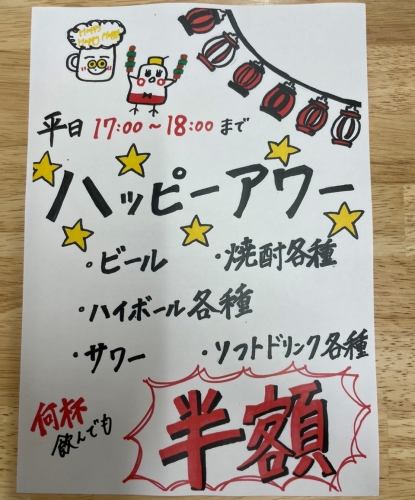 HAPPY
HAPPY HOUR
平日 17:00～18:00 まで
ハッピーアワー
・ビール ・焼酎各種
・ハイボール各種
・サワー ・ソフトドリンク各種
何杯
飲んでも
半額